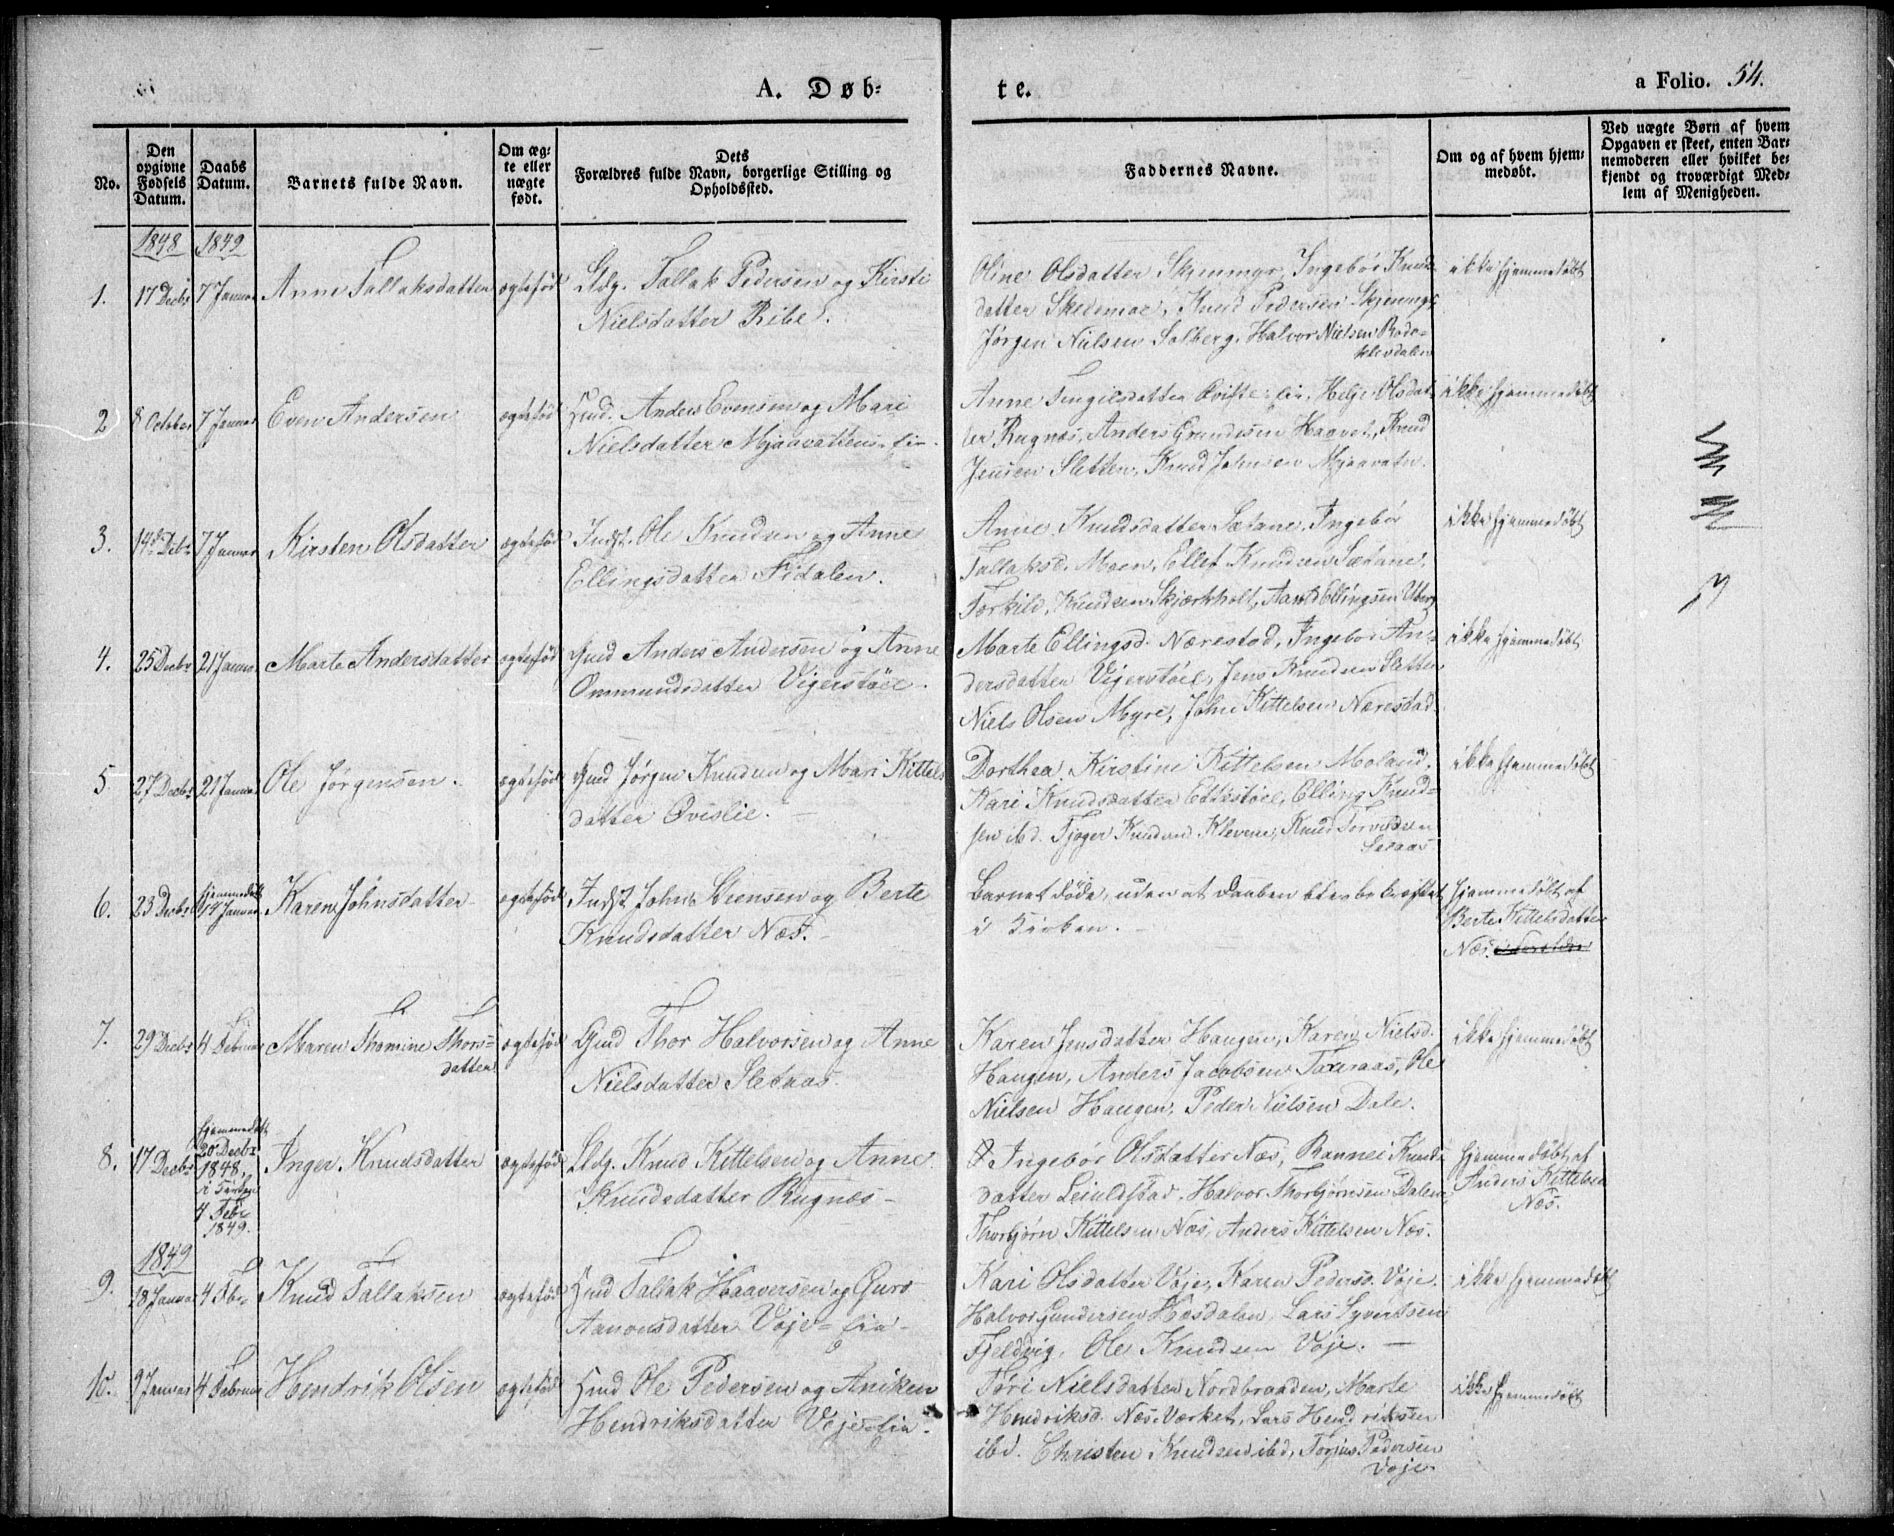 A. Døb-
te.
a Folio. 54.
No.
Den opgivne Fødsels Datum.
Daabs Datum.
Barnets fulde Navn.
Om ægte eller uægte født.
Dets Forældres fulde Navn, borgerlige Stilling og Opholdssted.
Faddernes Navne.
Om og af hvem hjemmedøbt.
Ved uægte Børn af hvem Opgaven er skeet, enten Barnemoderen eller hvilket bekjendt og troværdigt Medlem af Menigheden.
1848 1849
1. 17 Decbr 7 Januar Anne Tallaksdatter ægtefød Tallak Pedersen og Kirsti
Nielsdatter Ribe.
Oline Olsdatter Ingebor Knuds-
datter Knud Pedersen
Jørgen Nielsen Solberg, Halvor Nielsen
ikke hjemmedøbt
2 8 October 7 Januar Even Andersen ægtefød Huusmd. Anders Evensen og Mari
Nielsdatter Mjaavattens-eie.
Anne Tingilsdatter Helje Olsdat-
ter Rugnæs, Anders Haavet, Knud
Jensen Sletten, Knud Johnsen Mjaavatn.
ikke hjemmedøbt
3. 14de Decbr 7 Januar Kirsten Olsdatter ægtefød Indst. Ole Knudsen og Anne
Ellingsdatter Fidalen.
Anne Knudsdatter Sætane, Ingebor
Tallaksd. Moen, Ellef Knudsen Sætane,
Torkild Knudsen Skjærkholt, Ellingsen
ikke hjemmedøbt
4. 25 Decbr 21 Januar Marte Andersdatter ægtefød Gmd Anders Andersen og Anne
Ommundsdatter Vigerstöel.
Marte Ellingsd. Nærestad, Ingebor An-
dersdatter Vigerstöel, Jens Knudsen Sletten
Niels Olsen Myre, John Kittelsen Nærestad.
ikke hjemmedøbt
5. 27 Decbr 21 Januar Ole Jørgensen. ægtefød Gmd Jørgen Knudsen og Mari Kittels
datter Ovislie.
Dorthea Kirstine Kittelsen Moland,
Kari Knudsdatter Elling Knud-
sen ibd. Tjøger Knudsen Klevene, Knud
ikke hjemmedøbt
6. 23 Decbr hjemmedøbt 14 Januar Karen Johnsdatter ægtefød Indst John Steensen og Berte
Knudsdatter Næs.
Barnet døde, uden at Daaben blev bekræftet
i Kirken.
hjemmedøbt af
Berte Kittelsdatter
Næs.
7. 29 Decbr 4 Februar Maren Thomine Thors-
datter ægtefød Gmd Thor Halvorsen og Anne
Nielsdatter Sletaas.
Karen Jensdatter Haugen, Karen Nielsd.
Haugen, Anders Jacobsen Ole
Nielsen Haugen, Peder Nielsen Dale.
ikke hjemmedøbt
8. 17 Decbr hjemmedøbt
20 Decbr
1848,
i Kirken
4 Febr
1849. Inger Knudsdatter ægtefød Knud Kittelsen og Anne
Knudsdatter Rugnæs
Ingebor Olsdatter Næs, Knuds-
datter Halvor Thorbjørnsen Dalen
Thorbjørn Kittelsen Næs, Anders Kittelsen Næs.
hjemmedøbt af
Anders Kittelsen
Næs.
1849
9. 18 Januar 4 Febr Knud Tallaksen ægtefød Huusmd Tallak Haaversen og Guro
Aanonsdatter Voje-eie
Kari Olsdatter Voje, Karen Pedersd. Voje.
Halvor Gundersen Hosdalen, Lars Syvertsen
Fjeldvig, Ole Knudsen Voje.
ikke hjemmedøbt
10. 9 Januar 4 Februar Hendrik Olsen ægtefød Huusmd Ole Pedersen og Aniken
Hendriksdatter Voje-eie.
Töri Nielsdatter Nordbraaden, Marte
Hendriksd. Næs Værket, Lars Hendriksen
ibd. Christen Knudsen ibd, Torjus Pedersen
Voje
ikke hjemmedøbt